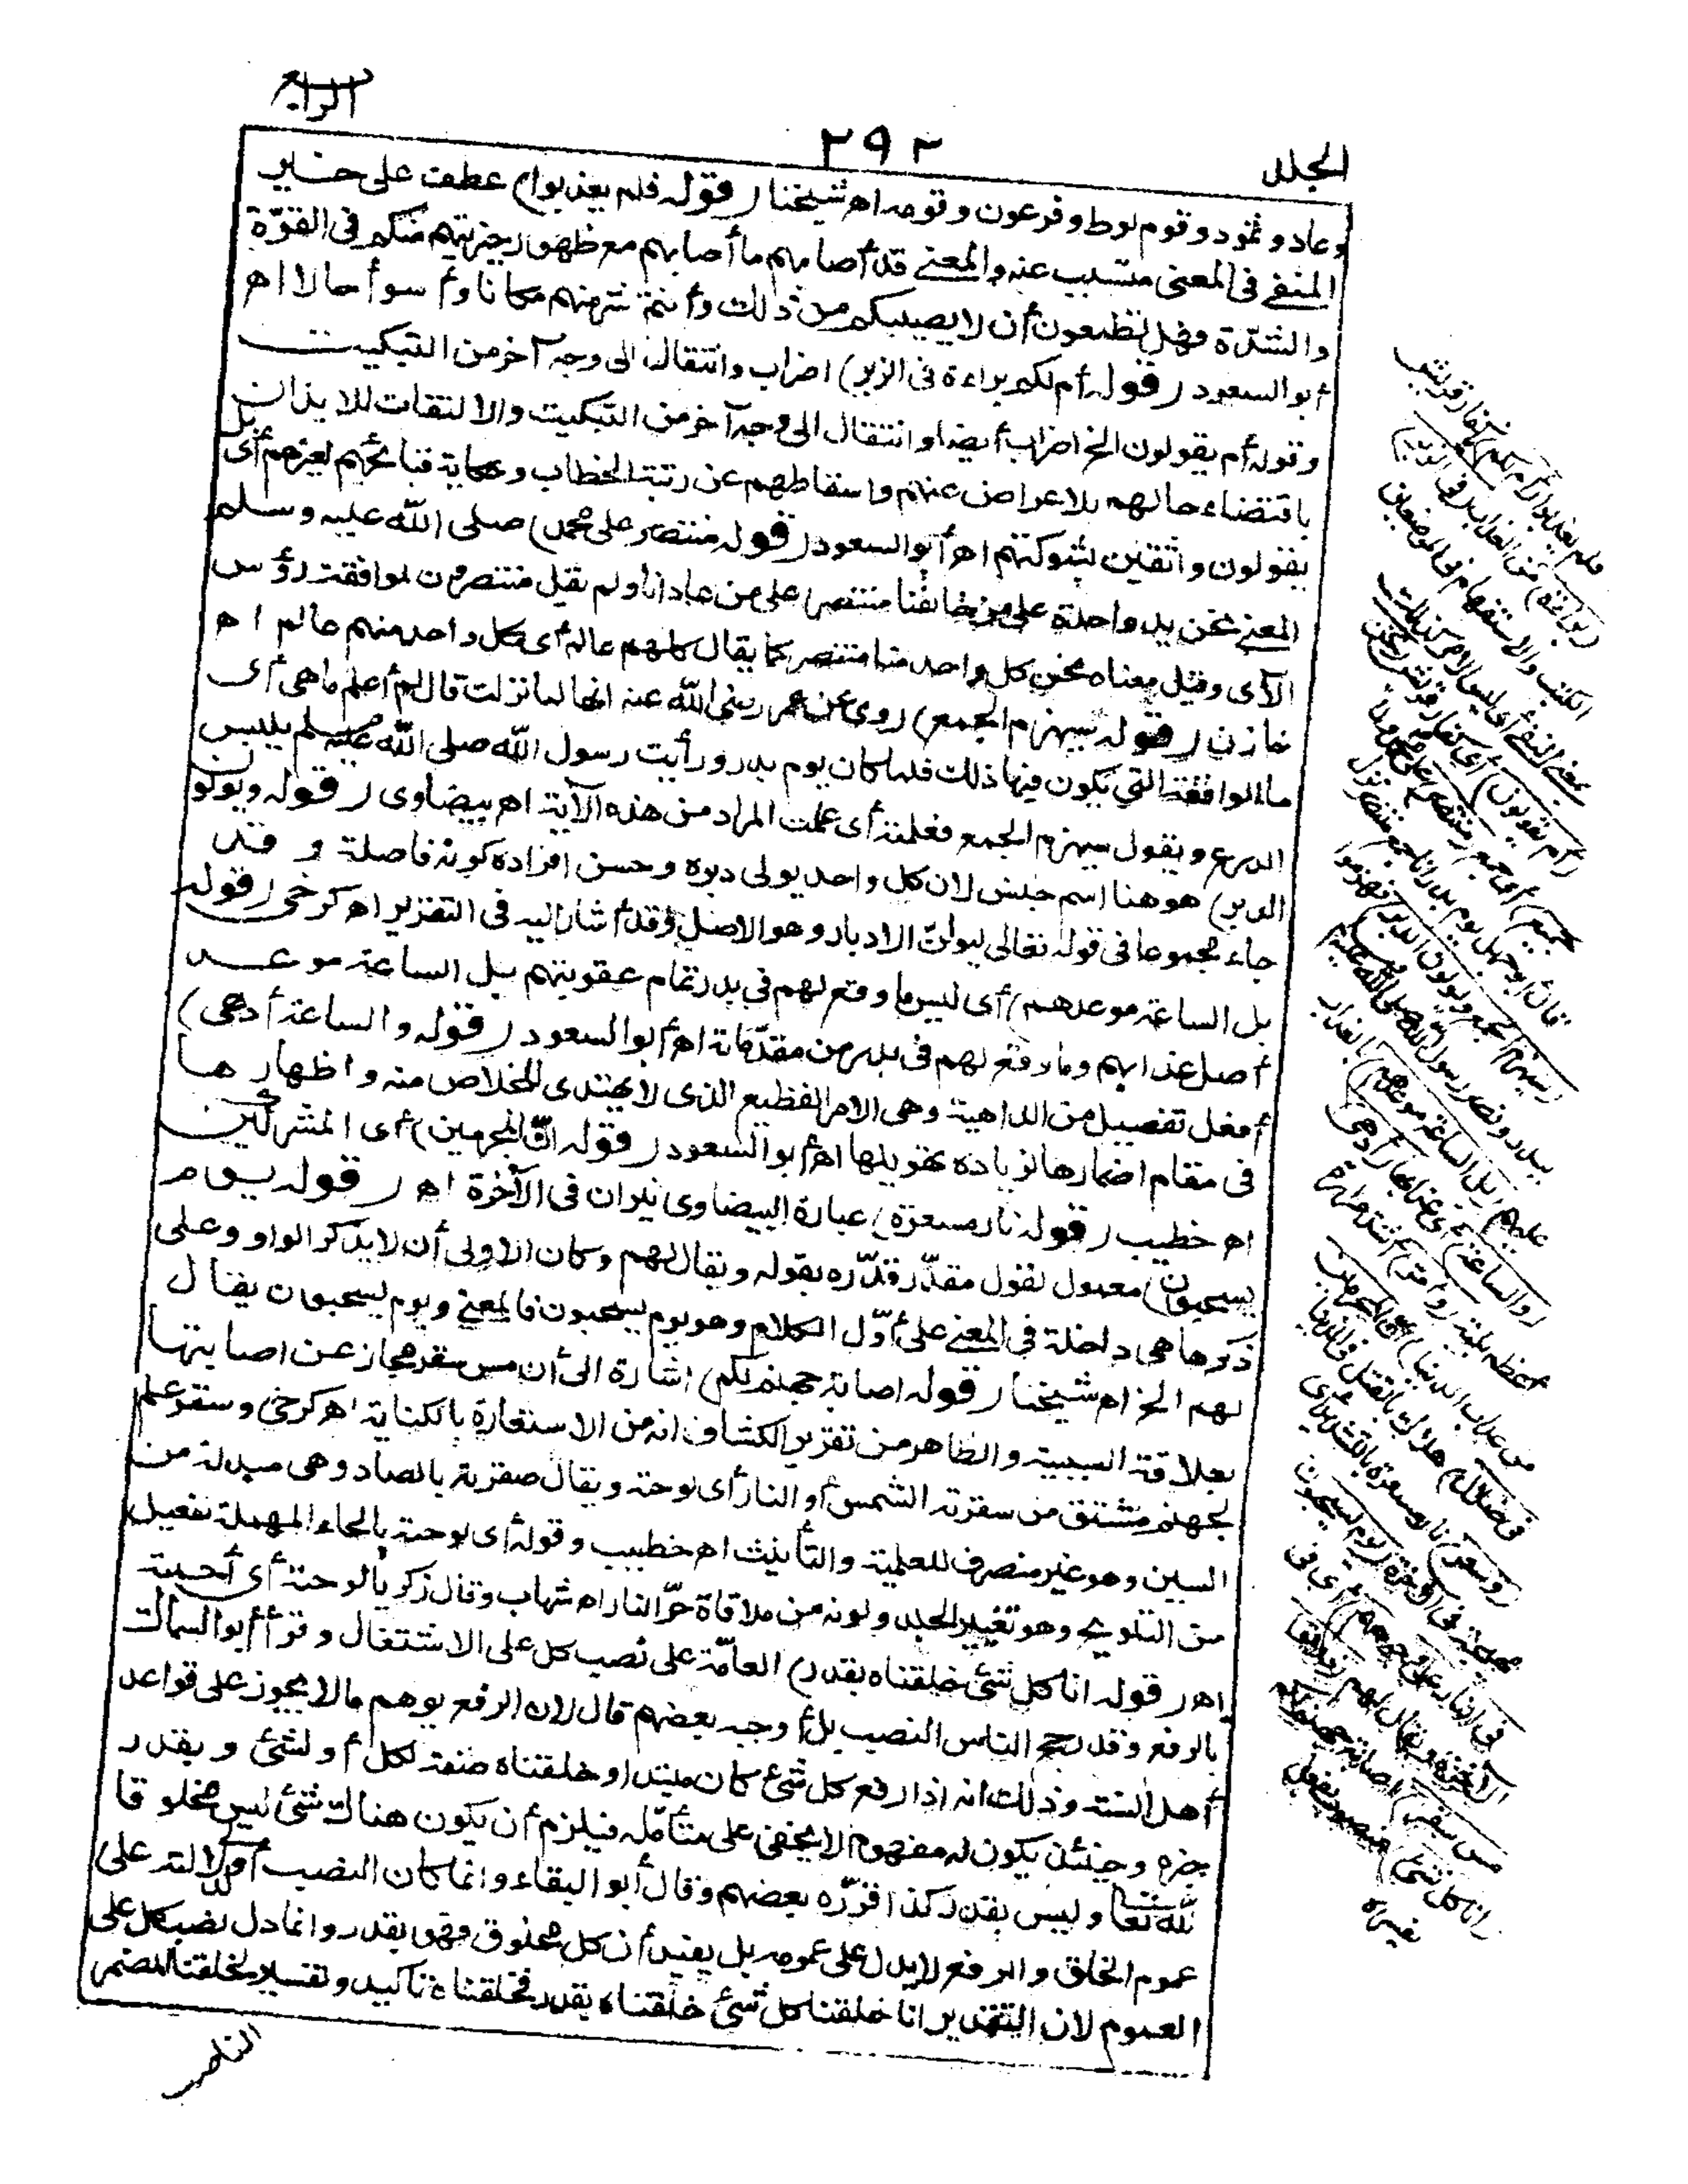 الرابع
٢٩٢
المجلد
وعاد وثمود وقوم لوط وفرعون وقومه اه شيخنا (قوله فلم يعذبوا) عطف على خبر
المنفى فى المعنى متسبب عنه والمعنى قد أصابهم ما أصابهم مع ظهور خيريتهم منكم فى القوّة
والشدّة فهل تطمعون أن لا يصيبكم من ذلك وأنتم شر منهم مكانا وأسوأ حالا اه
أبو السعود (قوله أم لكم براءة فى الزبر) اضراب وانتقال الى وجه آخر من التبكيت
وقوله أم يقولون الخ اضراب أيضا وانتقال الى وجه آخر من التبكيت والالتفات للايذان
باقتضاء حالهم بلاعراض عنهم واسقاطهم عن رتبة الخطاب وحكاية قبائحهم لغيرهم أى بل
يقولون واثقين بشوكتهم اه أبو السعود (قوله منتصر على محمد) صلى الله عليه وسلم
المعنى نحن يد واحدة على من خالفنا منتصر على من عادانا ولم يقل منتصرون لموافقة رؤس
الآى وقيل معناه نحن كل واحد منا منتصر كما يقال كلهم عالم أى كل واحد منهم عالم اه
خازن (قوله سيهزم الجمع) روى عن عمر رضى الله عنه انها لما نزلت قال لم أعلم ما هى أى
ما الواقعة التى يكون فيها ذلك فلما كان يوم بدر ورأيت رسول الله صلى الله عليه وسلم يلبس
الدرع ويقول سيهزم الجمع فعلمته أى علمت المراد من هذه الآية اه بيضاوى (قوله ويولون
الدبر) هو هنا اسم جنس لان كل واحد يولى دبره وحسن افراده كونه فاصلة وقد
جاء مجموعا فى قوله تعالى ليولنّ الادبار وهو الاصل وقد أشار اليه فى التقرير اه كرخى (قوله
بل الساعة موعدهم) أى ليس ما وقع لهم فى بدر تمام عقوبتهم بل الساعة موعد
أصل عذابهم وما وقع لهم فى بدر من مقدّماته اه أبو السعود (قوله والساعة أدهى)
أفعل تفضيل من الداهية وهى الامر الفظيع الذى لا يهتدى للخلاص منه واظهارها
فى مقام اضمارها لزيادة تهويلها اه أبو السعود (قوله انّ المجرمين) أى المشركين
اه خطيب (قوله نار مسعرة) عبارة البيضاوى نيران فى الآخرة اه (قوله يوم
يسحبون) معمول لقول مقدّر قدّره بقوله ونقال لهم وكان الاولى أن لا يذكر الواو وعلى
ذكرها هى داخلة فى المعنى على أوّل الكلام وهو يوم يسحبون فالمعنى ويوم يسحبون يقال
لهم الخ اه شيخنا (قوله اصابة جهنم لكم) اشارة الى أن مس سقر مجاز عن اصابتها
بعلاقة السببية والظاهر من تقرير الكشاف انه من الاستعارة بالكناية اه كرخى وسقر علم
لجهنم مشتق من سقرته الشمس أو النار أى لوحته ويقال صقرته بالصاد وهى مبدلة من
السين وهو غير منصرف للعلمية والتأنيث اه خطيب وقوله أى لوحته بالحاء المهملة تفعيل
من التلويح وهو تغيير الجلد ولونه من ملاقاة حرّ النار اه شهاب وقال زكريا لوحته أى أحمته
اه (قوله انا كل شئ خلقناه بقدر) العامّة على نصب كل على الاشتغال وقرأ أبو السمال
بالرفع وقد رجح الناس النصب بل أوجبه بعضهم قال لان الرفع يوهم ما لا يجوز على قواعد
أهل السنة وذلك انه اذا رفع كل شئ كان مبتدا وخلقناه صفة لكل أو لشئ وبقدر
خبره وحينئذ يكون له مفهوم لا يخفى على متأمّله فيلزم أن يكون هناك شئ ليس مخلوقا
لله تعالى وليس بقدر كذا قرّره بعضهم وقال أبو البقاء وانما كان النصب أولى لدلالته على
عموم الخلق والرفع لا يدل على عمومه بل يفيد أن كل مخلوق فهو بقدر وانما دل نصب كل على
العموم لان التقدير انا خلقنا كل شئ خلقناه بقدر فخلقناه تأكيد وتفسير لخلقنا المضمر
الناصب
فلم يعذبوا (أم لكم) كفار قريش
(براءة) من العذاب (فى الزبر)
الكتب والاستفهام فى الموضعين
بمعنى النفى أى ليس الامر كذلك
(أم يقولون) أى كفار قريش (نحن
جميع) أى جمع (منتصر) على محمد
قال أبو جهل يوم بدر انا جمع منتصر نزل
(سيهزم الجمع ويولون الدبر) فهزموا
ببدر ونصر رسول الله صلى الله عليه وسلم
عليهم (بل الساعة موعدهم) بالعذاب
(والساعة) أى عذابها (أدهى)
أعظم بلية (وأمر) أشد مرارة
من عذاب الدنيا (ان المجرمين
فى ضلال) هلاك بالقتل فى الدنيا
(وسعر) نار مسعرة بالتشديد أى
مهيجة فى الآخرة (يوم يسحبون
فى النار على وجوههم) أى فى
الآخرة ويقال لهم (ذوقوا
مس سقر) اصابة جهنم لكم
(انا كل شئ) منصوب بفعل
يفسره